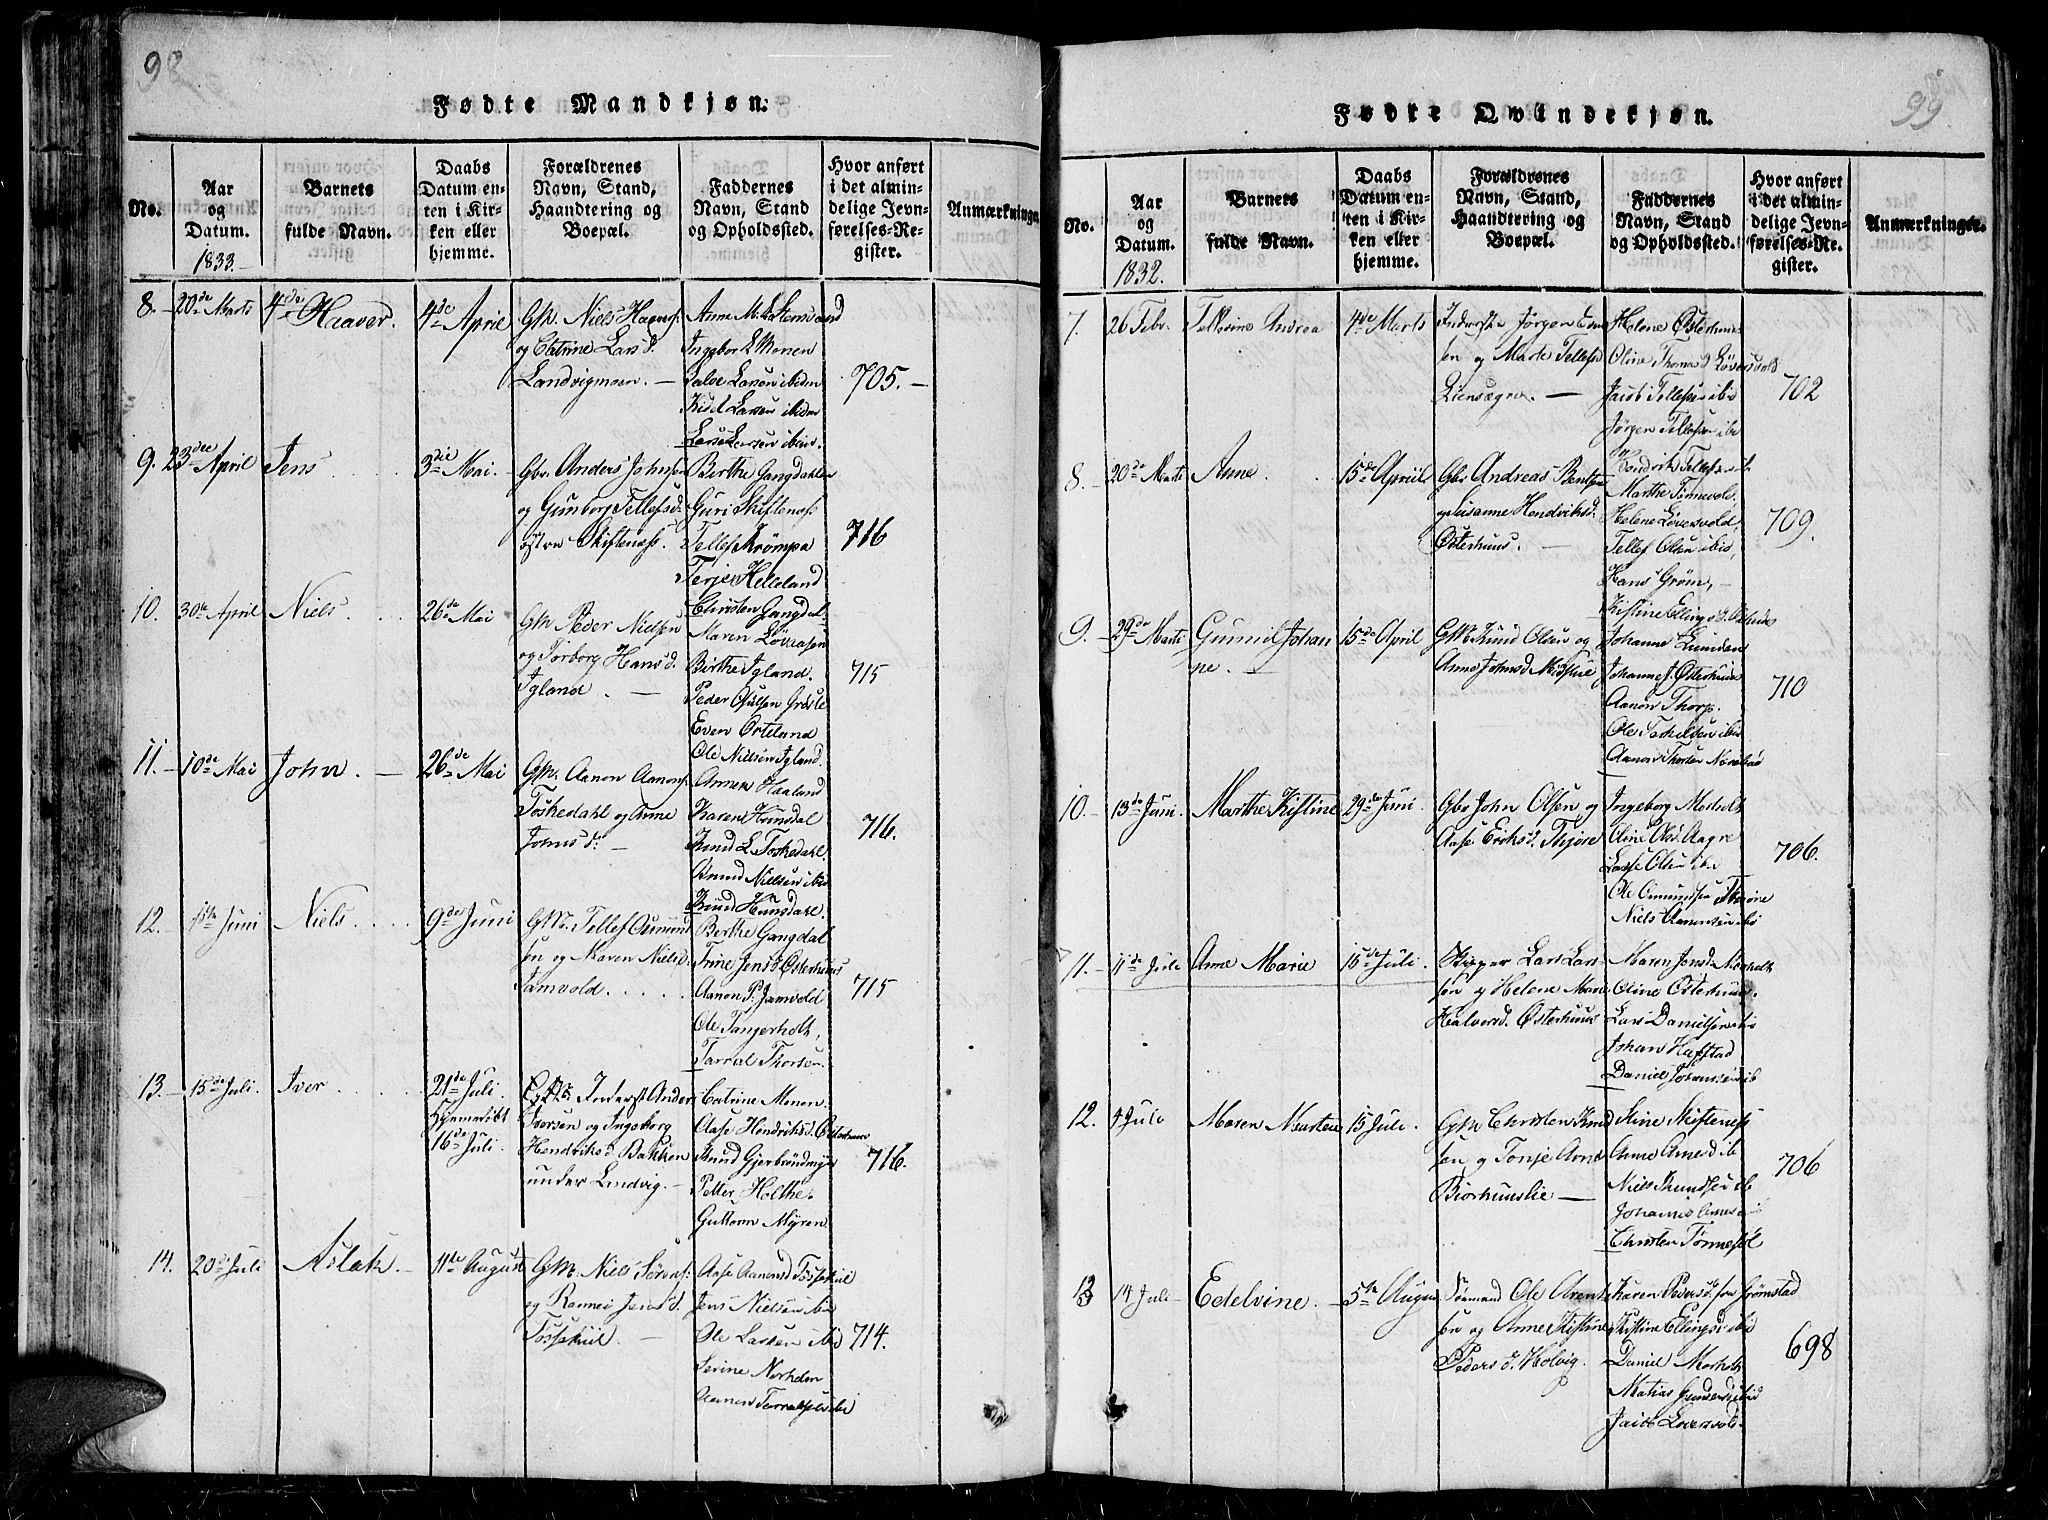 98
Fødte Mandkjøn.
No.
Aar og Datum.
1833.
Barnets fulde Navn.
Daabs Datum enten i Kirken eller hjemme.
Forældrenes Navn, Stand, Haandtering og Boepæl.
Faddernes Navn, Stand og Opholdssted.
Hvor anført i det almindelige Jevnførelses-Register.
Anmærkninger
8. 20de Marts
Haaver.
4de April
GM. Niels
og Lars d.
Landvigmoen.
Ingebor Monen
Salve Larsen ibiden
Kidel Larsen ibiden
Lars Larsen ibid.
705.
9. 23de April
Jens
3die Mai.
Gbr. Anders Johns.
og Gunborg Tellefsd.
østre Skiftenæs.
Berthe Gangdahlen
Guri Skiftenæs
Tellef Krømpa
Terje Helleland
Christen Gangdal
716
10. 30te April
Niels
26de Mai
GM Peder Nielsen
og Torborg Hans d.
Igland.
Maren Løvaasen
Birthe Igland.
Peder Osulsen
Even Orteland
Ole Nielsen Igland.
715
11. 10de Mai
John.
26de Mai
GM. Aanon Aanons.
Toskedahl og Anne
Johns d.
Anne Haaland
Karen Hunsdal
Knud L. Toskedahl.
Knud Nielsen ibid
Knud Hunsdahl.
716.
12. 1ste Juni
Niels
9de Juni
GM. Tellef Osmund
sen og Maren Niels d.
Jamvold
Berthe Gangdal
Trine Jens d. Østerhuus
Aanon P. Jamvold
Ole Tangerholt,
Tarral Thorsen
715
13. 15de Juli.
Iver
21de Juli
Hjemmedøbt
16de Juli.
Inderst Anders
Iversen og Ingeborg
Hendriks d. Bakken
under Landvig.
Catrine Monen.
Aase Hendriksd. Østerhuus
Knud Gjerbrøndmyr
Petter Holthe.
Guttorm Myren
716.
14. 20de Juli
Aslak.
11de August
GM. Niels Sørens.
og Ronnei Jens d.
Tøsseküil.
Aase Aanonsd Tøsseküil
Jens Nielsen ibid
Ole Larsen ibid
Serine
Aanon
714.
99
Fødte Qvindekjøn.
No.
Aar og Datum.
1832.
Barnets fulde Navn.
Daabs Datum enten i Kirken eller hjemme.
Forældrenes Navn, Stand, Haandtering og Boepæl.
Faddernes Navn, Stand og Opholdssted.
Hvor anført i det almindelige Jevnførelses-Register.
Anmærkninger.
7. 26 Febr.
Andrea
4de Marts
Inderste Jørgen
sen og Marte Tellefsd
Helene Østerhuus
Oline Thomas d. Løversvold
Jacob Tellefsen ibid
Jørgen Tellefsen ibid
Hendrik Tellefsen ib
702
8. 20de Marts
Anne.
15de Apriil
Gbr Andreas Bentsen
og Susanne Hendriksd.
Østerhuus.
Marthe Tønnevold.
Helene Løversvold,
Tellef Olsen ibid,
Hans Grøm,
Kistine Ellings d.
709.
9. 29de Marts
Gunnil Johan
ne.
15de April
GM. Knud Olsen og
Anne Johns d.
Johanne Lunden
Johanne J. Østerhuus
Aanon Thorp.
Ole Tarkilsen ibid
Aanon Thorsen
710
10. 13de Juni.
Marthe Kistine
29de Juni
Gbr John Olsen og
Aase Eriks d. Thjøre
Ingeborg Morholt
Oline Ols d. Aagre
Lasse Olsen ibid
Ole Omundsen Thiøre
Niels Aanonsen ibid
706.
11. 11de Juli
Anne Marie
15de Juli.
Skipper Lars Lars-
sen og Helene Marie
Halvorsd. Østerhuus
Maren Jensd Morholt
Oline Østerhuus.
Lars Danielsen ibid
Johan Hafstad
Daniel Johansen ib
12. 4 Juli
Maren Marten
15 Juli.
GM Christen Knud
sen og Tonje Arnes
Biorhuuslie
Stine Skiftenæs
Anne Arnes d ib
Niels Knudsen ib
Johannes
Christen Tønnesøl
706
13 14 Juli
Edelvine.
5te August
Sømand Ole Arent
sen og Anne Kistine
Peders d. Holvig.
Karen Peders d. fra Grømstad
Kistine Ellingsd ibid
Daniel Morholt
Matias Gundersen ibid
Jacob Løversvold
698